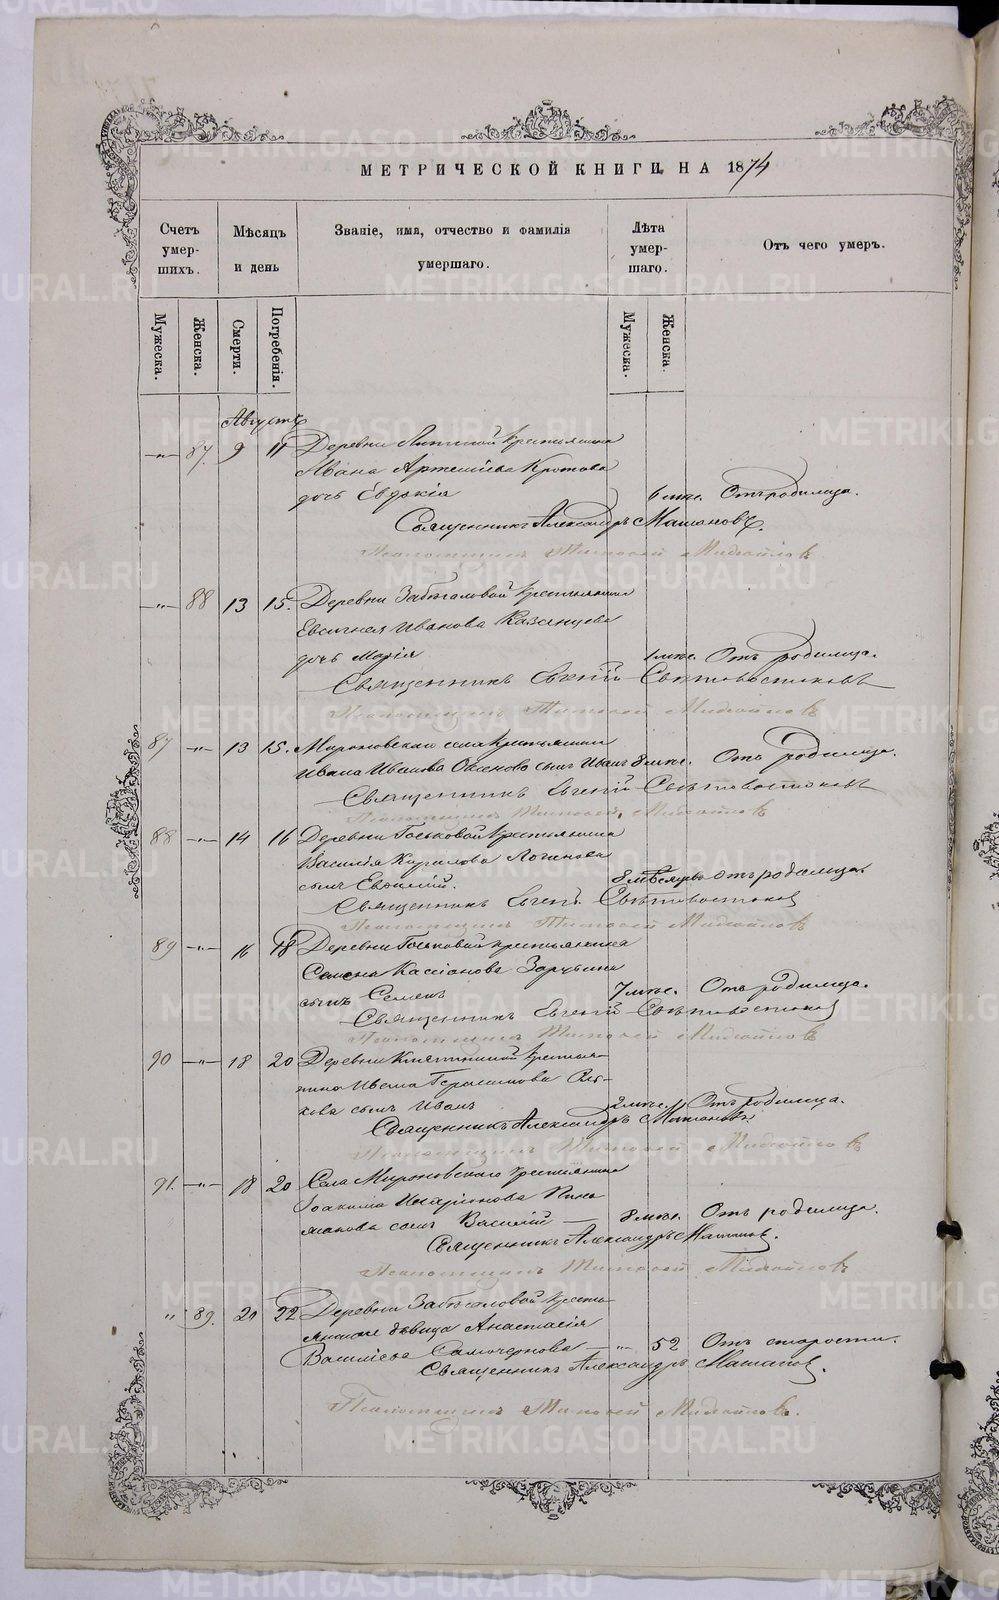 МЕТРИЧЕСКОЙ КНИГИ НА 1874
Счетъ умер- шихъ.
Мѣсяцъ и день
Званіе, имя, отчество и фамилія умершаго.
Лѣта умер- шаго.
Отъ чего умеръ.
Мужеска.
Женска.
Смерти.
Погребенія.
Мужеска.
Женска.
Августъ
87. 9 11 Деревни Липиной крестьянина
Ивана Артеміева Кротова
дочь Евдокія 6 мѣс. Отъ родимца.
Священникъ Александръ
Псаломщикъ Тимофей Михайловъ
88 13 15. Деревни крестьянина
Евсигнея Иванова Казанцева
дочь Марія 1 мѣс. Отъ родимца.
Священникъ Евгеній Свѣтовостоковъ
Псаломщикъ Тимофей Михайловъ
87 13 15. Мироновскаго села крестьянина
Ивана Иванова сынъ Иванъ 8 мѣс. Отъ родимца.
Священникъ Евгеній Свѣтовостоковъ
Псаломщикъ Тимофей Михайловъ
88 14 16 Деревни крестьянина
Василія Кирилова Логинова
сынъ Евфимій. 8 Отъ родимца.
Священникъ Евгеній Свѣтовостоковъ
Псаломщикъ Тимофей Михайловъ
89 16 18 Деревни крестьянина
Семена Кассіанова Зарубина
сынъ Семенъ 7 мѣс. Отъ родимца.
Священникъ Евгеній Свѣтовостоковъ
Псаломщикъ Тимофей Михайловъ
90 18 20 Деревни крестья-
нина Ивана Герасимова
сынъ Иванъ 2 мѣс. Отъ родимца.
Священникъ Александръ
Псаломщикъ Тимофей Михайловъ
91. 18 20 Села Мироновскаго крестьянина
Іоакима Иларіонова
сынъ Василій 8 мѣс. Отъ родимца.
Священникъ Александръ
Псаломщикъ Тимофей Михайловъ
89. 21 22 Деревни кресть-
дѣвица Анастасія
Васильева Самочернова 52 Отъ старости.
Священникъ Александръ
Псаломщикъ Тимофей Михайловъ.
METRIKI.GASO-URAL.RU